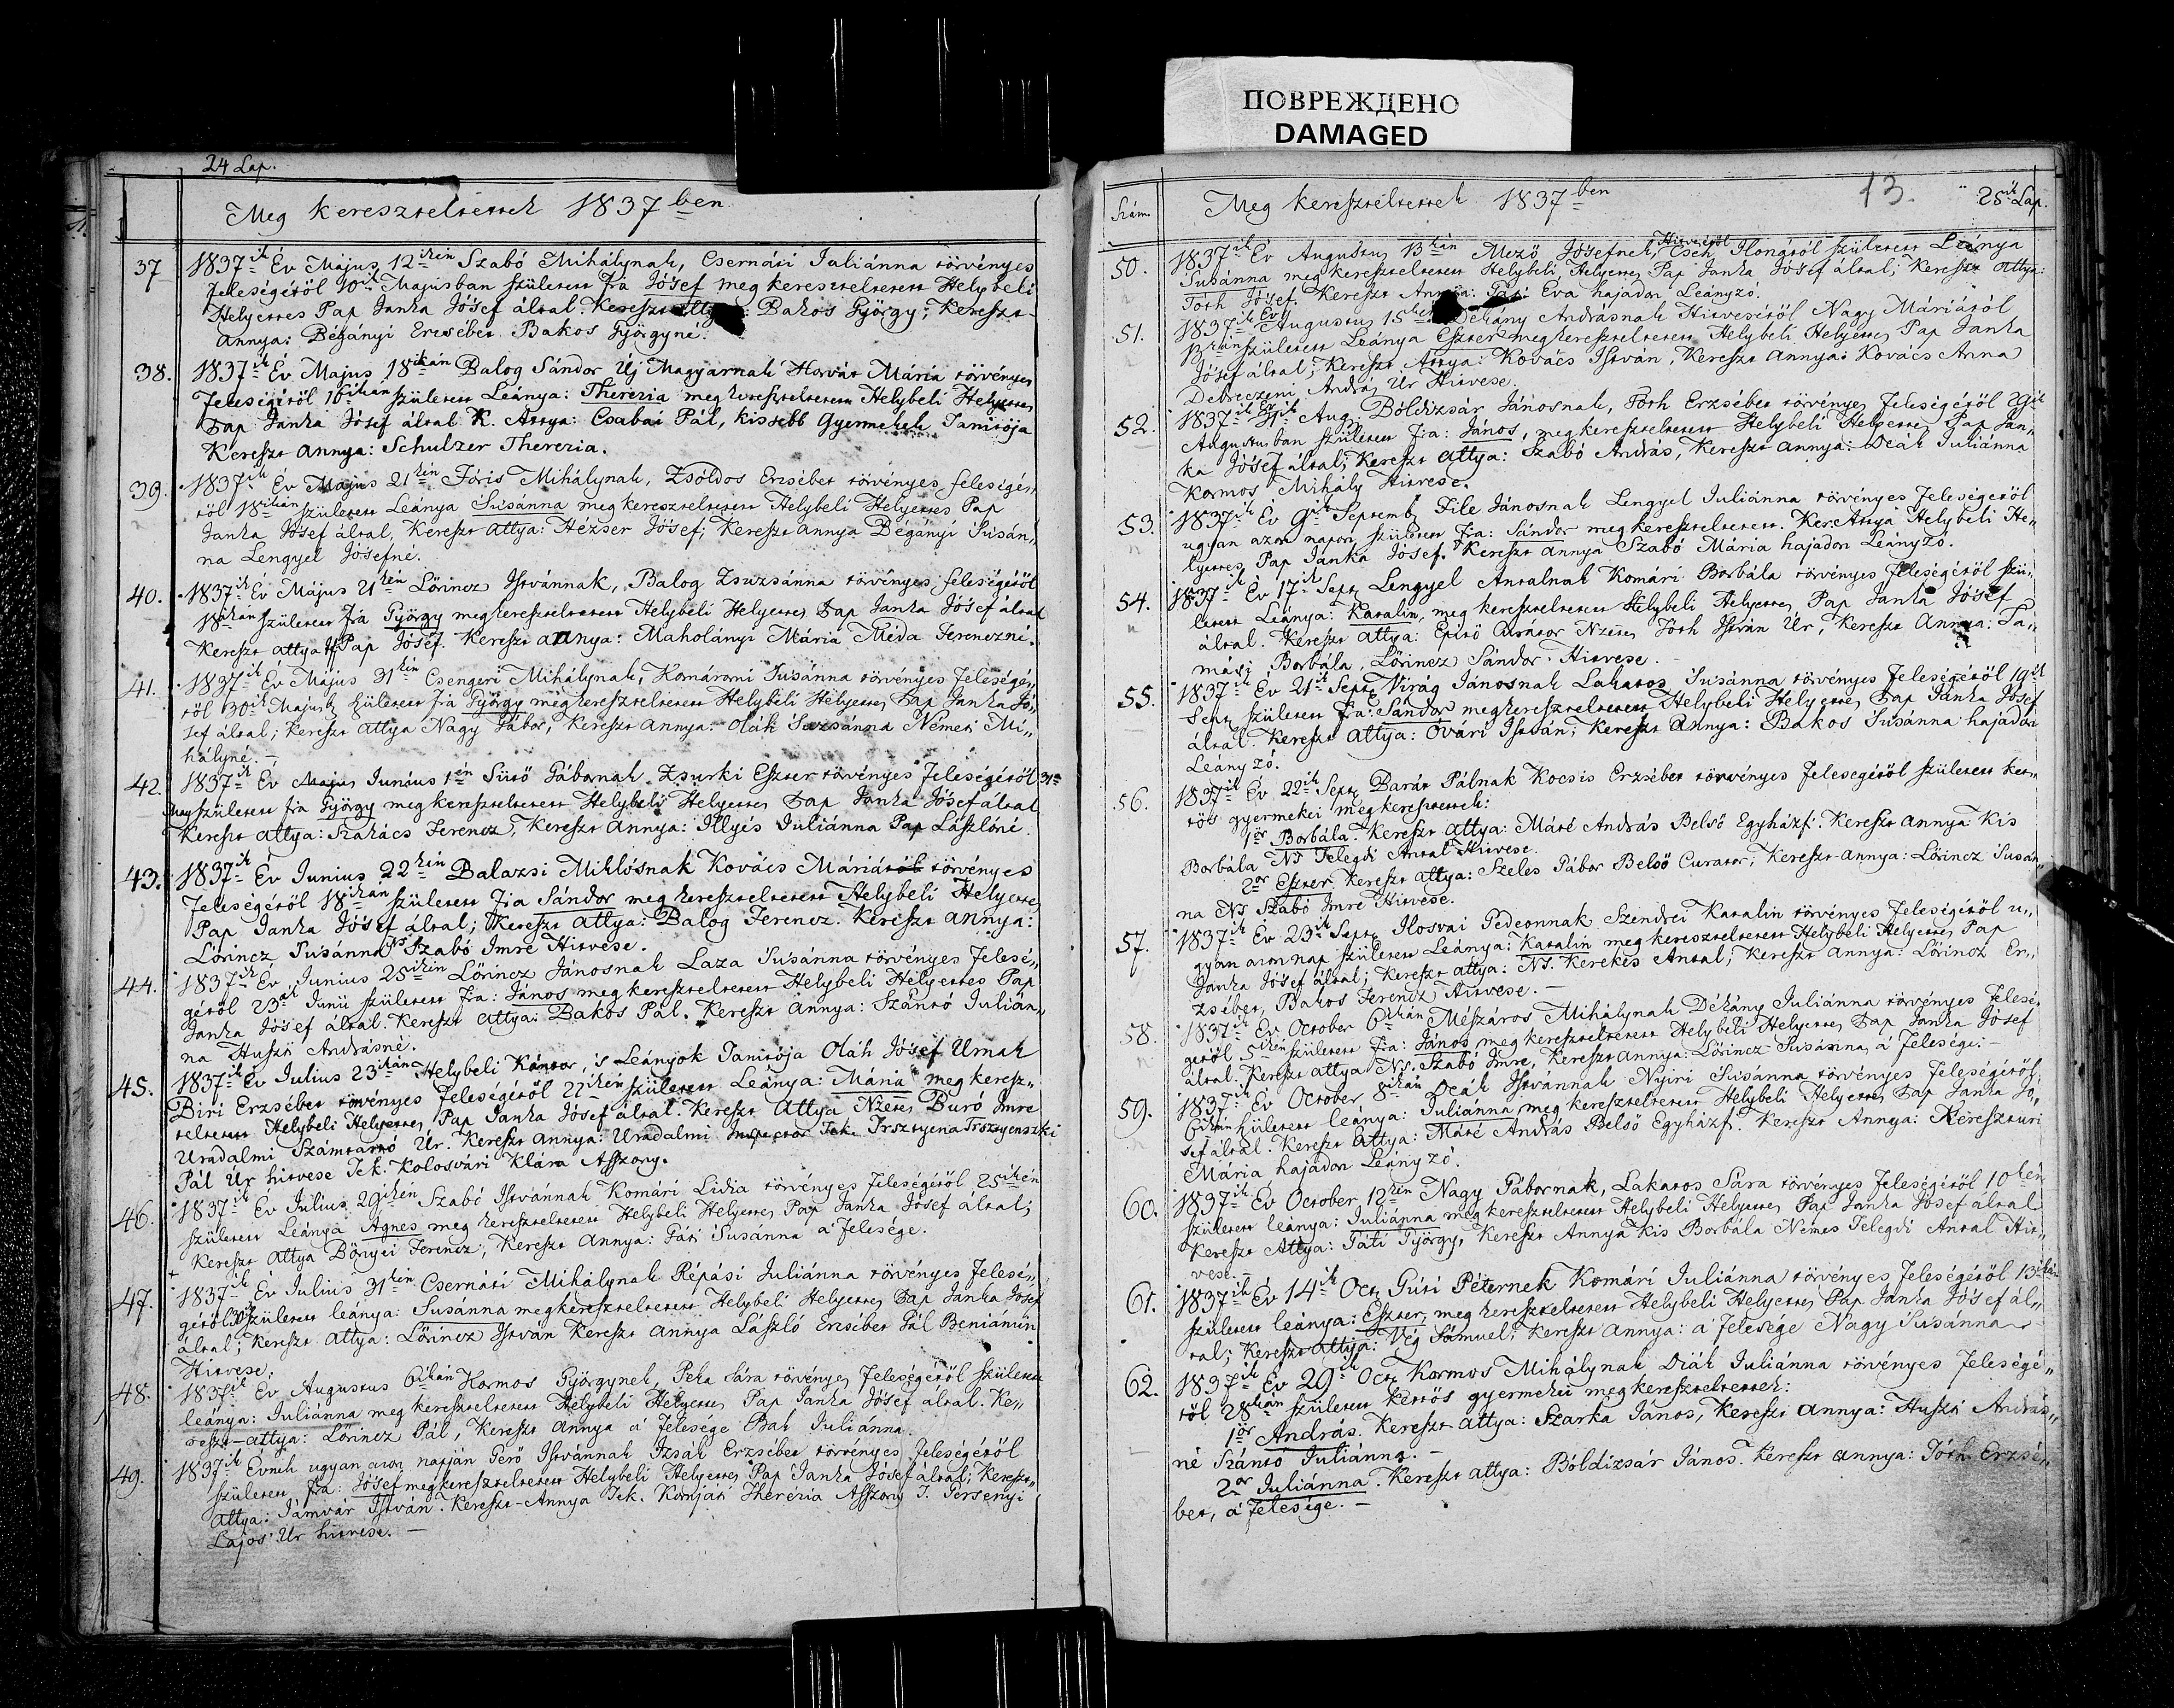 ПОВРЕЖДЕНО
DAMAGED
24 Lap.
Meg kereszteltettek 1837ben
37 1837ik Év Május 12ikén Szabó Mihálynak, Csernási Juliánna törvényes
feleségétöl 10ik Májusban született fia Jósef meg kereszteltetett Helybeli
Helyettes Pap Janka Jósef által. Kereszt Bakos György; Kereszt-
Annya: Bégányi Ersébet Bakos Györgyné.
38. 1837ik Év Majus 18ikán Balog Sándor Uj Magyarnak Horvát Mária törvényes
feleségétöl 16ikán született Leánya: Therezia meg kereszteltetett Helybeli Helyettes
Pap Janka Jósef által K. Attya: Csabai Pál, kissebb Gyermekek Tanitója
Kereszt Annya: Schulzer Therezia.
39. 1837ik Év Majus 21kén Fóris Mihálynak, Zsóldos Ersébet törvényes feleségé„
töl 18ikán született Leánya Susánna meg kereszteltetett Helybeli Helyettes Pap
Janka Jósef által, Kereszt attya: Hézser Jósef; Kereszt annya Bégányi Susán„
na Lengyel Jósefné.
40. 1837ik Év Május 21kén Lörincz Istvánnak, Balog Zsuzsánna törvényes feleségétöl
18ikán született fia György meg kereszteltetett Helybeli Helyettes Pap Janka Jósef által
Kereszt attya Ifj Pap Jósef. Kereszt annya: Maholányi Mária Méda Ferenczné.
41. 1837ik Év Május 31kén Csengeri Mihálynak, Komáromi Susánna törvényes feleségé„
töl 30ik Majusb született fia György meg kereszteltetett Helybeli Helyettes Pap Janka Jó„
sef által; Kereszt attya Nagy Gábor, Kereszt annya: Oláh Susánna Nemes Mi„
hályné. –
42. 1837ik Év Majus Junius 1én Sütö Gábornak Zsurki Eszter törvényes feleségétöl 31n
May született fia György meg kereszteltetett Helybeli Helyettes Pap Janka Jósef által
Kereszt attya: Szakács Ferencz, Kereszt annya: Illyés Juliánna Pap Lászlóné.
43. 1837ik Év Junius 22kén Balazsi Miklósnak Kovács Máriától törvényes
feleségétöl 18ikán született fia Sándor meg kereszteltetett Helybeli Helyettes
Pap Janka Jósef által; Kereszt attya: Balog Ferencz. Kereszt annya:
Lörincz Susánna Ns Szabó Imre Hitvese.
44. 1837ik Év Junius 25ikén Lörincz Jánosnak Laza Susánna törvényes felesé„
gétöl 23ak Junii született fia: János meg kereszteltetett Helybeli Helyettes Pap
Janka Jósef által. Kereszt attya: Bakos Pál. Kereszt annya: Szántó Julián„
na Huszti Andrásné.
45. 1837ik Év Julius 23ikán Helybeli Kántor, 's Leányok Tanitója Oláh Jósef Urnak
Biri Erzsébet törvényes feleségétöl 22ikén született Leánya: Mária meg keresz„
teltetett Helybeli Helyettes Pap Janka Jósef által. Kereszt attya Nzetes Buró Imre
Uradalmi Számtartó Ur. Kereszt annya: Uradalmi Inspector Tek. Trsztyena Trsztyenszki
Pál Úr hitvese Tek. Kolosvári Klára Asszony.
46. 1837ik Év Julius 29ikén Szabó Istvánnak Komári Lidia törvényes feleségétöl 25ikén
született Leánya Agnes meg kereszteltetett Helybeli Helyettes Pap Janka Jósef által;
Kereszt attya Bönyei Ferencz, Kereszt annya: Gáti Susánna a' felesége.
47. 1837ik Év Julius 31kén Csernási Mihálynak Répási Juliánna törvényes felesé„
gétöl 30ik született leánya: Susanna meg kereszteltetett Helybeli Helyettes Pap Janka Jósef
által; Kereszt attya: Lörincz István Kereszt annya László Ersébet Gál Beniámin
Hitvese.
48. 1837ik Év Augustus 6ikán Kormos Györgynek, Peka Sára törvényes feleségétöl született
leánya: Juliánna meg kereszteltetett Helybeli Helyettes Pap Janka Jósef által. Ke„
reszt-attya: Lörincz Pál, Kereszt annya a' felesége Bak Juliánna.
49. 1837ik Évnek ugyan azon napján Gerö Istvánnak Izsák Erzsébet törvényes feleségétöl
született fia: Jósef meg kereszteltetett Helybeli Helyettes Pap Janka Jósef által; Kereszt„
attya: Jámvár István. Kereszt-Annya Tek. Komjáti Therézia Asszony T. Gersenyi
Lajos Ur hitvese. –
Szám. Meg kereszteltettek 1837ben 13. 25ik Lap.
50. 1837ik Év Augustus 13kán Mezö Jósefnek, Hitvesétöl Cseh Ilonától született Leánya
Susánna meg kereszteltetett Helybeli Helyettes Pap Janka Jósef által; Kereszt attya:
Tóth Jósef. Kereszt Annya: Éva hajadon Leányzó.
51. 1837ik Év Augustus 15kén Dékány Andrásnak Hitvesétöl Nagy Máriától
13kán született Leánya Eszter meg kereszteltetett Helybeli Helyettes Pap Janka
Jósef által; Kereszt Attya: Kovács István, Kereszt Annya: Kovács Anna
Debreczeni András Ur Hitvese.
52. 1837ik Év 31ik Aug. Bóldizsár Jánosnak, Tóth Erzsébet törvényes feleségétöl 29ik
Augustusban született fia: János, meg kereszteltetett Helybeli Helyettes Pap Jan„
ka Jósef által; Kereszt attya: Szabó András, Kereszt annya: Deák Juliánna
Kormos Mihály Hitvese.
53. 1837ik Év 9ik Septemb File Jánosnak Lengyel Juliánna törvényes feleségétöl
ugyan azon napon született fia: Sándor meg kereszteltetett. Ker. Attya Helybeli He„
lyettes Pap Janka Jósef. Kereszt annya Szabó Mária hajadon Leányzó.
54. 1837ik Év 17ik Sept Lengyel Antalnak Komári Borbála törvényes feleségétöl szü„
letett Leánya: Katalin, meg kereszteltetett Helybeli Helyettes Pap Janka Jósef
által. Kereszt attya: Épitö Curátor Nzetes Tóth István Ur, Kereszt Annya: Ta„
mási Borbála, Lörincz Sándor Hitvese.
55. 1837ik Év 21ik Sept Virág Jánosnak Lakatos Susánna törvényes feleségétöl 19ik
Sept született fia: Sándor meg kereszteltetett Helybeli Helyettes Pap Janka Jósef
által. Kereszt attya: Óvári István; Kereszt annya: Bakos Susánna hajadon
Leányzó.
56. 1837ik Év 22ik Sept Barát Pálnak Kocsis Erzsébet törvényes feleségétöl született ket„
tös gyermekei meg keresztettek:
1ör Borbála. Kereszt attya: Máté András Belsö Egyházf. Kereszt annya Kis
Borbála Ns Telegdi Antal Hitvese.
2or Eszter. Kereszt attya: Szeles Gábor Belsö Curator; Kereszt-annya: Lörincz Susán„
na Ns Szabó Imre Hitvese.
57. 1837ik Év 23ik Sept Ilosvai Gedeonnak Szendrei Katalin törvényes feleségétöl u„
gyan azon nap született Leánya: Katalin meg kereszteltetett Helybeli Helyettes Pap
Janka Jósef által; Kereszt attya: Ns. Kerekes Antal; Kereszt Annya: Lörincz Er„
zsébet, Bakos Ferencz Hitvese. –
58. 1837ik Év October 6ikán Mészáros Mihálynak Dékány Juliánna törvényes felesé„
gétöl 5ikén született fia: János meg kereszteltetett Helybeli Helyettes Pap Janka Jósef
által. Kereszt attya Ns. Szabó Imre, Kereszt annya: Lörincz Susánna a' felesége. –
59. 1837ik Év October 8ikán Deák Istvánnak Nyiri Susánna törvényes feleségétöl
6ikán született leánya: Juliánna meg kereszteltetett Helybeli Helyettes Pap Janka Jó„
sef által. Kereszt attya: Máté András Belsö Egyházf. Kereszt Annya: Kereszturi
Mária hajadon Leányzó.
60. 1837ik Év October 12kén Nagy Gábornak, Lakatos Sára törvényes feleségétöl 10kén
született leánya: Juliánna meg kereszteltetett Helybeli Helyettes Pap Janka Jósef által
Kereszt Attya: Gáti György, Kereszt Annya Kis Borbála Nemes Telegdi Antal Hit„
vese. –
61. 1837ik Év 14ik Oct. Gúti Péternek Komári Juliánna törvényes feleségétöl 13ikán
született leánya: Eszter, meg kereszteltetett Helybeli Helyettes Pap Janka Jósef ál„
tal; Kereszt attya: Vég Sámuel; Kereszt annya: a' felesége Nagy Susánna
62. 1837ik Év 29ik Oct Kormos Mihálynak Diák Juliánna törvényes feleségé„
töl 28ikán született kettös gyermekei meg kereszteltettek:
1ör András. Kereszt attya: Szarka János, Kereszt annya: Huszti András„
né Szántó Juliánna. –
2or Juliánna. Kereszt attya: Bóldizsár János. Kereszt annya: Tóth Erzsé„
bet, a' felesége. –